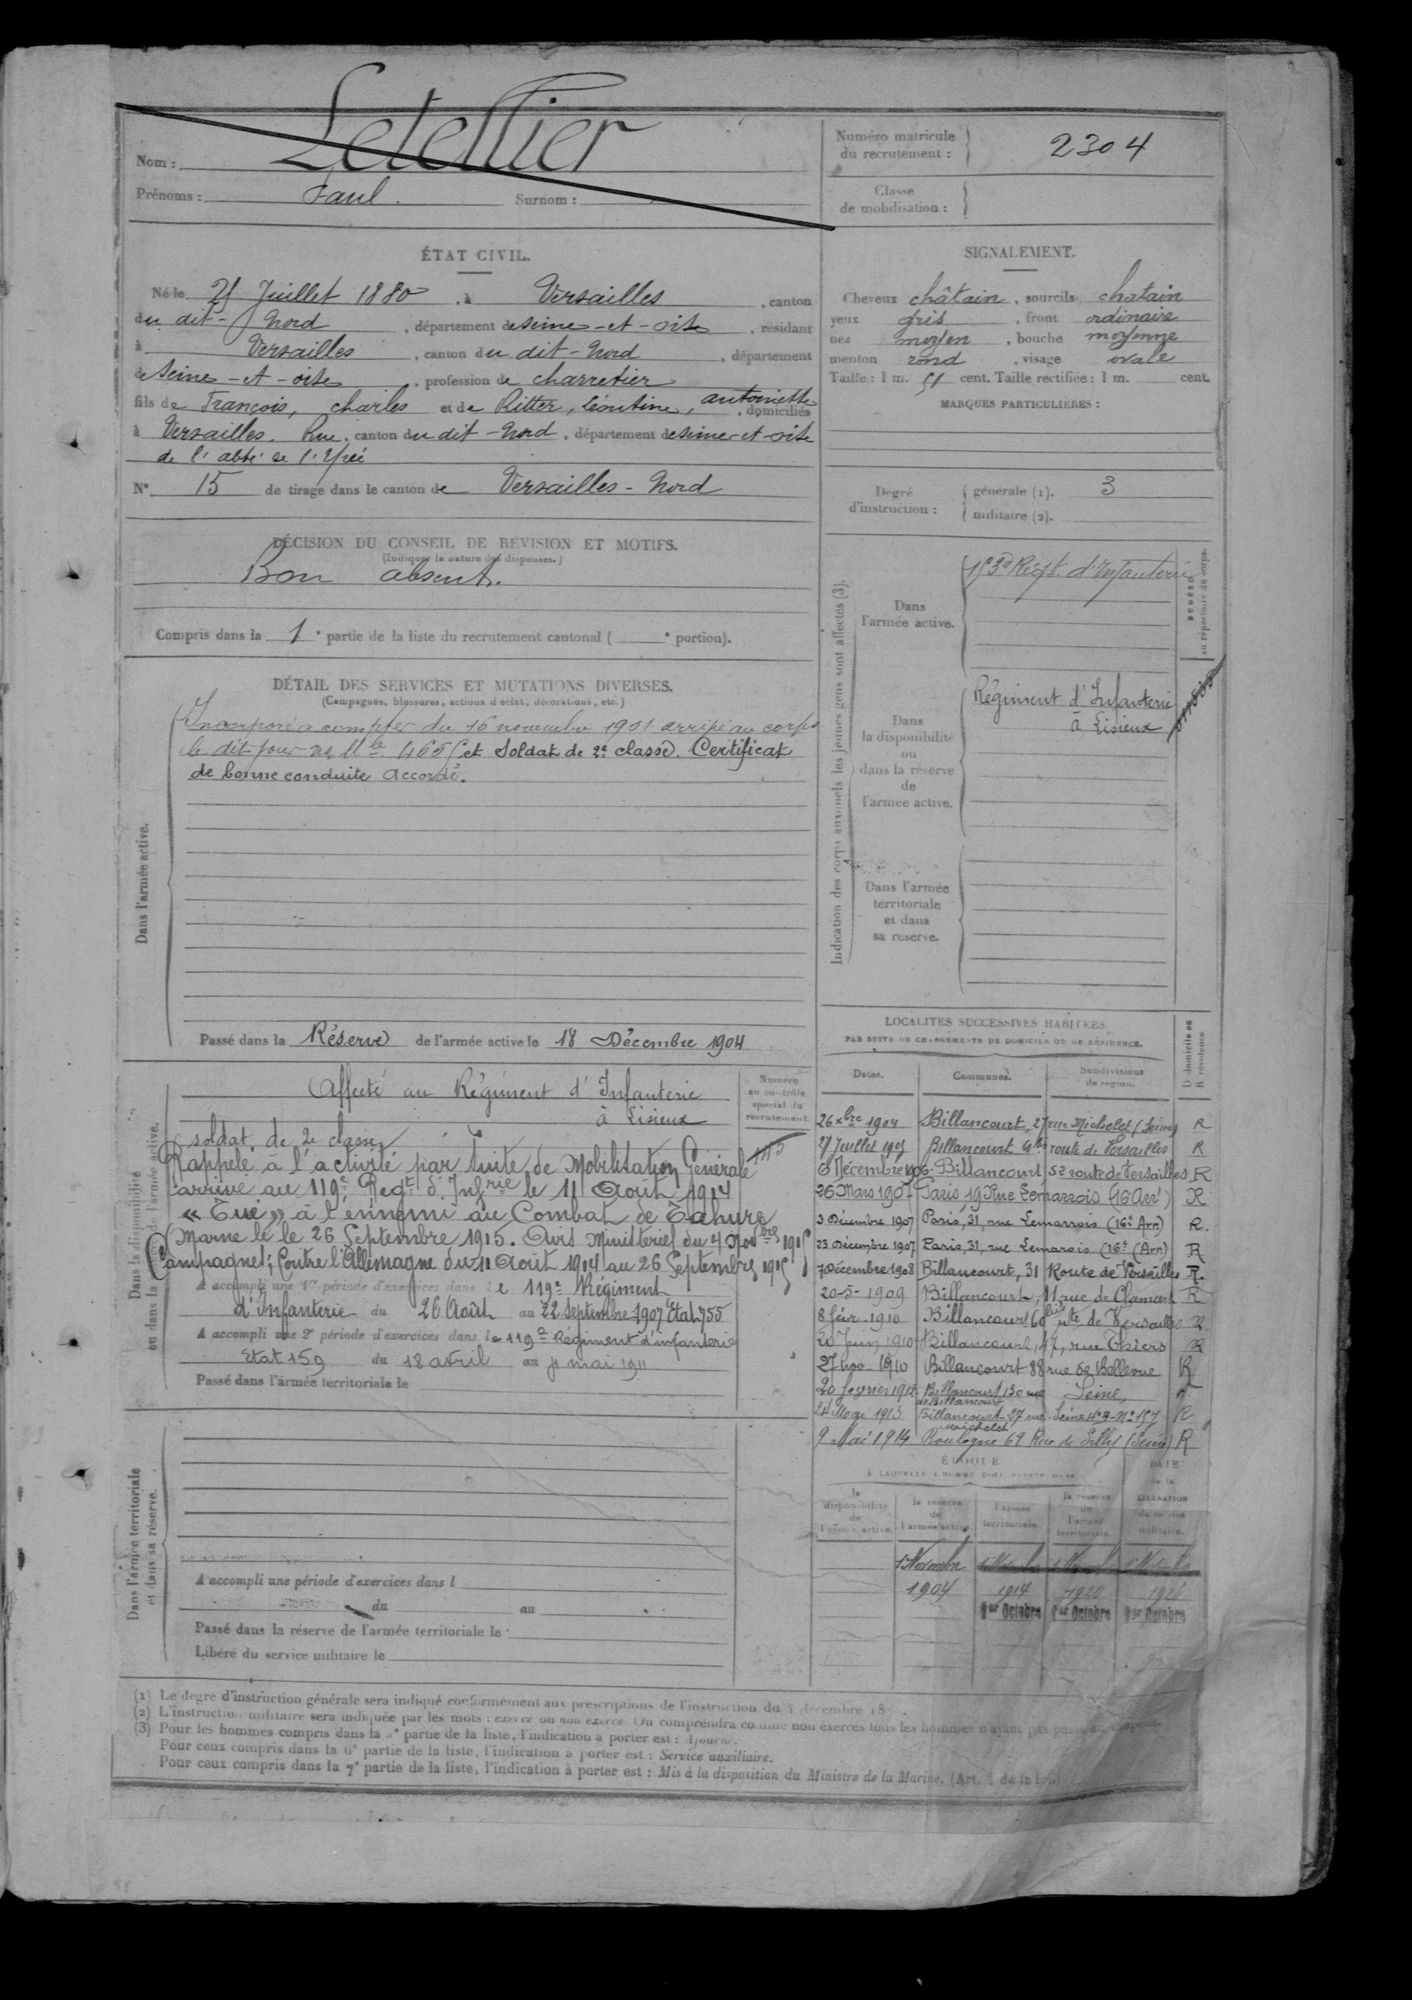 Nom : Letellier
Prénoms : Paul. Surnom :
Numéro matricule du recrutement : 2304
Classe de mobilisation :
ÉTAT CIVIL.
Né le Juillet 1880, à Versailles, canton
du dit-Nord, département de Seine-et-Oise, résidant
à Versailles, canton du dit-Nord, département
de Seine-et-Oise, profession de charretier
fils de François, Charles et de Ritter, Léontine, Antoinette, domiciliés
à Versailles. Rue, canton du dit-Nord, département de Seine-et-Oise
de l'abbé de l'Epée
N° 15 de tirage dans le canton de Versailles-Nord
SIGNALEMENT.
Cheveux châtain, sourcils chatain
yeux gris, front ordinaire
nez moyen, bouche moyenne
menton rond, visage ovale
Taille : 1 m. cent. Taille rectifiée : 1 m. cent.
MARQUES PARTICULIÈRES :
Degré d'instruction : générale (1). 3
militaire (2).
DÉCISION DU CONSEIL DE RÉVISION ET MOTIFS.
(Indiquer la nature des dispenses.)
Bon absent.
Compris dans la 1e partie de la liste du recrutement cantonal ( e portion).
Indication des corps auxquels les jeunes gens sont affectés (3).
Dans l'armée active.
153e Régt. d'Infanterie
NUMÉRO au répertoire du corps.
Dans la disponibilité ou dans la réserve de l'armée active.
Régiment d'Infanterie
à Lisieux
Dans l'armée territoriale et dans sa réserve.
DÉTAIL DES SERVICES ET MUTATIONS DIVERSES.
(Campagnes, blessures, actions d'éclat, décorations, etc.)
Dans l'armée active.
Incorporé à compter du 16 novembre 1901 arrivé au corps
le dit jour et Soldat de 2e classe. Certificat
de bonne conduite accordé.
Passé dans la Réserve de l'armée active le 18 Décembre 1904
Dans la disponibilité ou dans la réserve de l'armée active.
Numéro au contrôle spécial du recrutement.
Affecté au Régiment d'Infanterie
à Lisieux
soldat de 2e classe
Rappelé à l'activité par suite de Mobilisation Générale
arrivé au 119e Regt d'Infrie le 11 Août 1914
« Tué » à l'ennemi au Combat de Tahure
(Marne) le 26 Septembre 1915. Avis Ministériel du 4 Novbre 1915
Campagnes; Contre l'Allemagne du 11 Août 1914 au 26 Septembre 1915
A accompli une 1re période d'exercices dans le 119e Régiment
d'Infanterie du 26 Août au 22 Septembre 1907 Etat 755
A accompli une 2e période d'exercices dans le 119e Régiment d'infanterie
Etat 159 du 18 avril au mai 1911
Passé dans l'armée territoriale le
LOCALITÉS SUCCESSIVES HABITÉES
PAR SUITE DE CHANGEMENTS DE DOMICILE OU DE RÉSIDENCE.
D domicile ou R résidence.
Dates. Communes. Subdivisions de région.
26 Xbre 1904 Billancourt, 27 rue Michelet (Seine) R
Juillet 1905 Billancourt route de Versailles R
Décembre 1906 - Billancourt 52 route de Versailles R
26 Mars 1907 Paris, 19 Rue Lemarrois (16 Arrt) R
3 Décembre 1907 Paris, 31, rue Lemarrois (16e Arr) R.
23 Décembre 1907 Paris, 31, rue Lemarois (16e (Arr) R
7 Décembre 1908 Billancourt, 31 Route de Versailles R.
20-5-1909 Billancourt, 11 rue de Clamart R
8 fév. 1910 Billancourt 60bis rte de Versailles R
20 Juin 1910 Billancourt, 47, rue Thiers R
27 nov. 1910 Billancourt 88 rue de Bellevue R
20 février 1912 Billancourt 130 rue de Billancourt Seine R
24 Mai 1913 Billancourt 27 rue Michelet R
9 Mai 1914 Boulogne 62 Rue de Silly (Seine) R
ÉPOQUE
À LAQUELLE L'HOMME DOIT PASSER DANS
DATE de la LIBÉRATION du service militaire.
la disponibilité de l'armée active.
la réserve de l'armée active.
l'armée territoriale.
la réserve de l'armée territoriale.
1er Novembre 1er Novembre 1er Novembre 1er Novembre
1904 1914 1920 1926
1er Octobre 1er Octobre 1er Octobre
Dans l'armée territoriale et dans sa réserve.
A accompli une période d'exercices dans l
du au
Passé dans la réserve de l'armée territoriale le
Libéré du service militaire le
(1) Le degré d'instruction générale sera indiqué conformément aux prescriptions de l'instruction du décembre
(2) L'instruction militaire sera indiquée par les mots : exercé ou non exercé. On comprendra comme non exercés tous les hommes n'ayant pas passé
(3) Pour les hommes compris dans la 5e partie de la liste, l'indication à porter est : Ajourné.
Pour ceux compris dans la 6e partie de la liste, l'indication à porter est : Service auxiliaire.
Pour ceux compris dans la 7e partie de la liste, l'indication à porter est : Mis à la disposition du Ministre de la Marine. (Art. de la loi.)